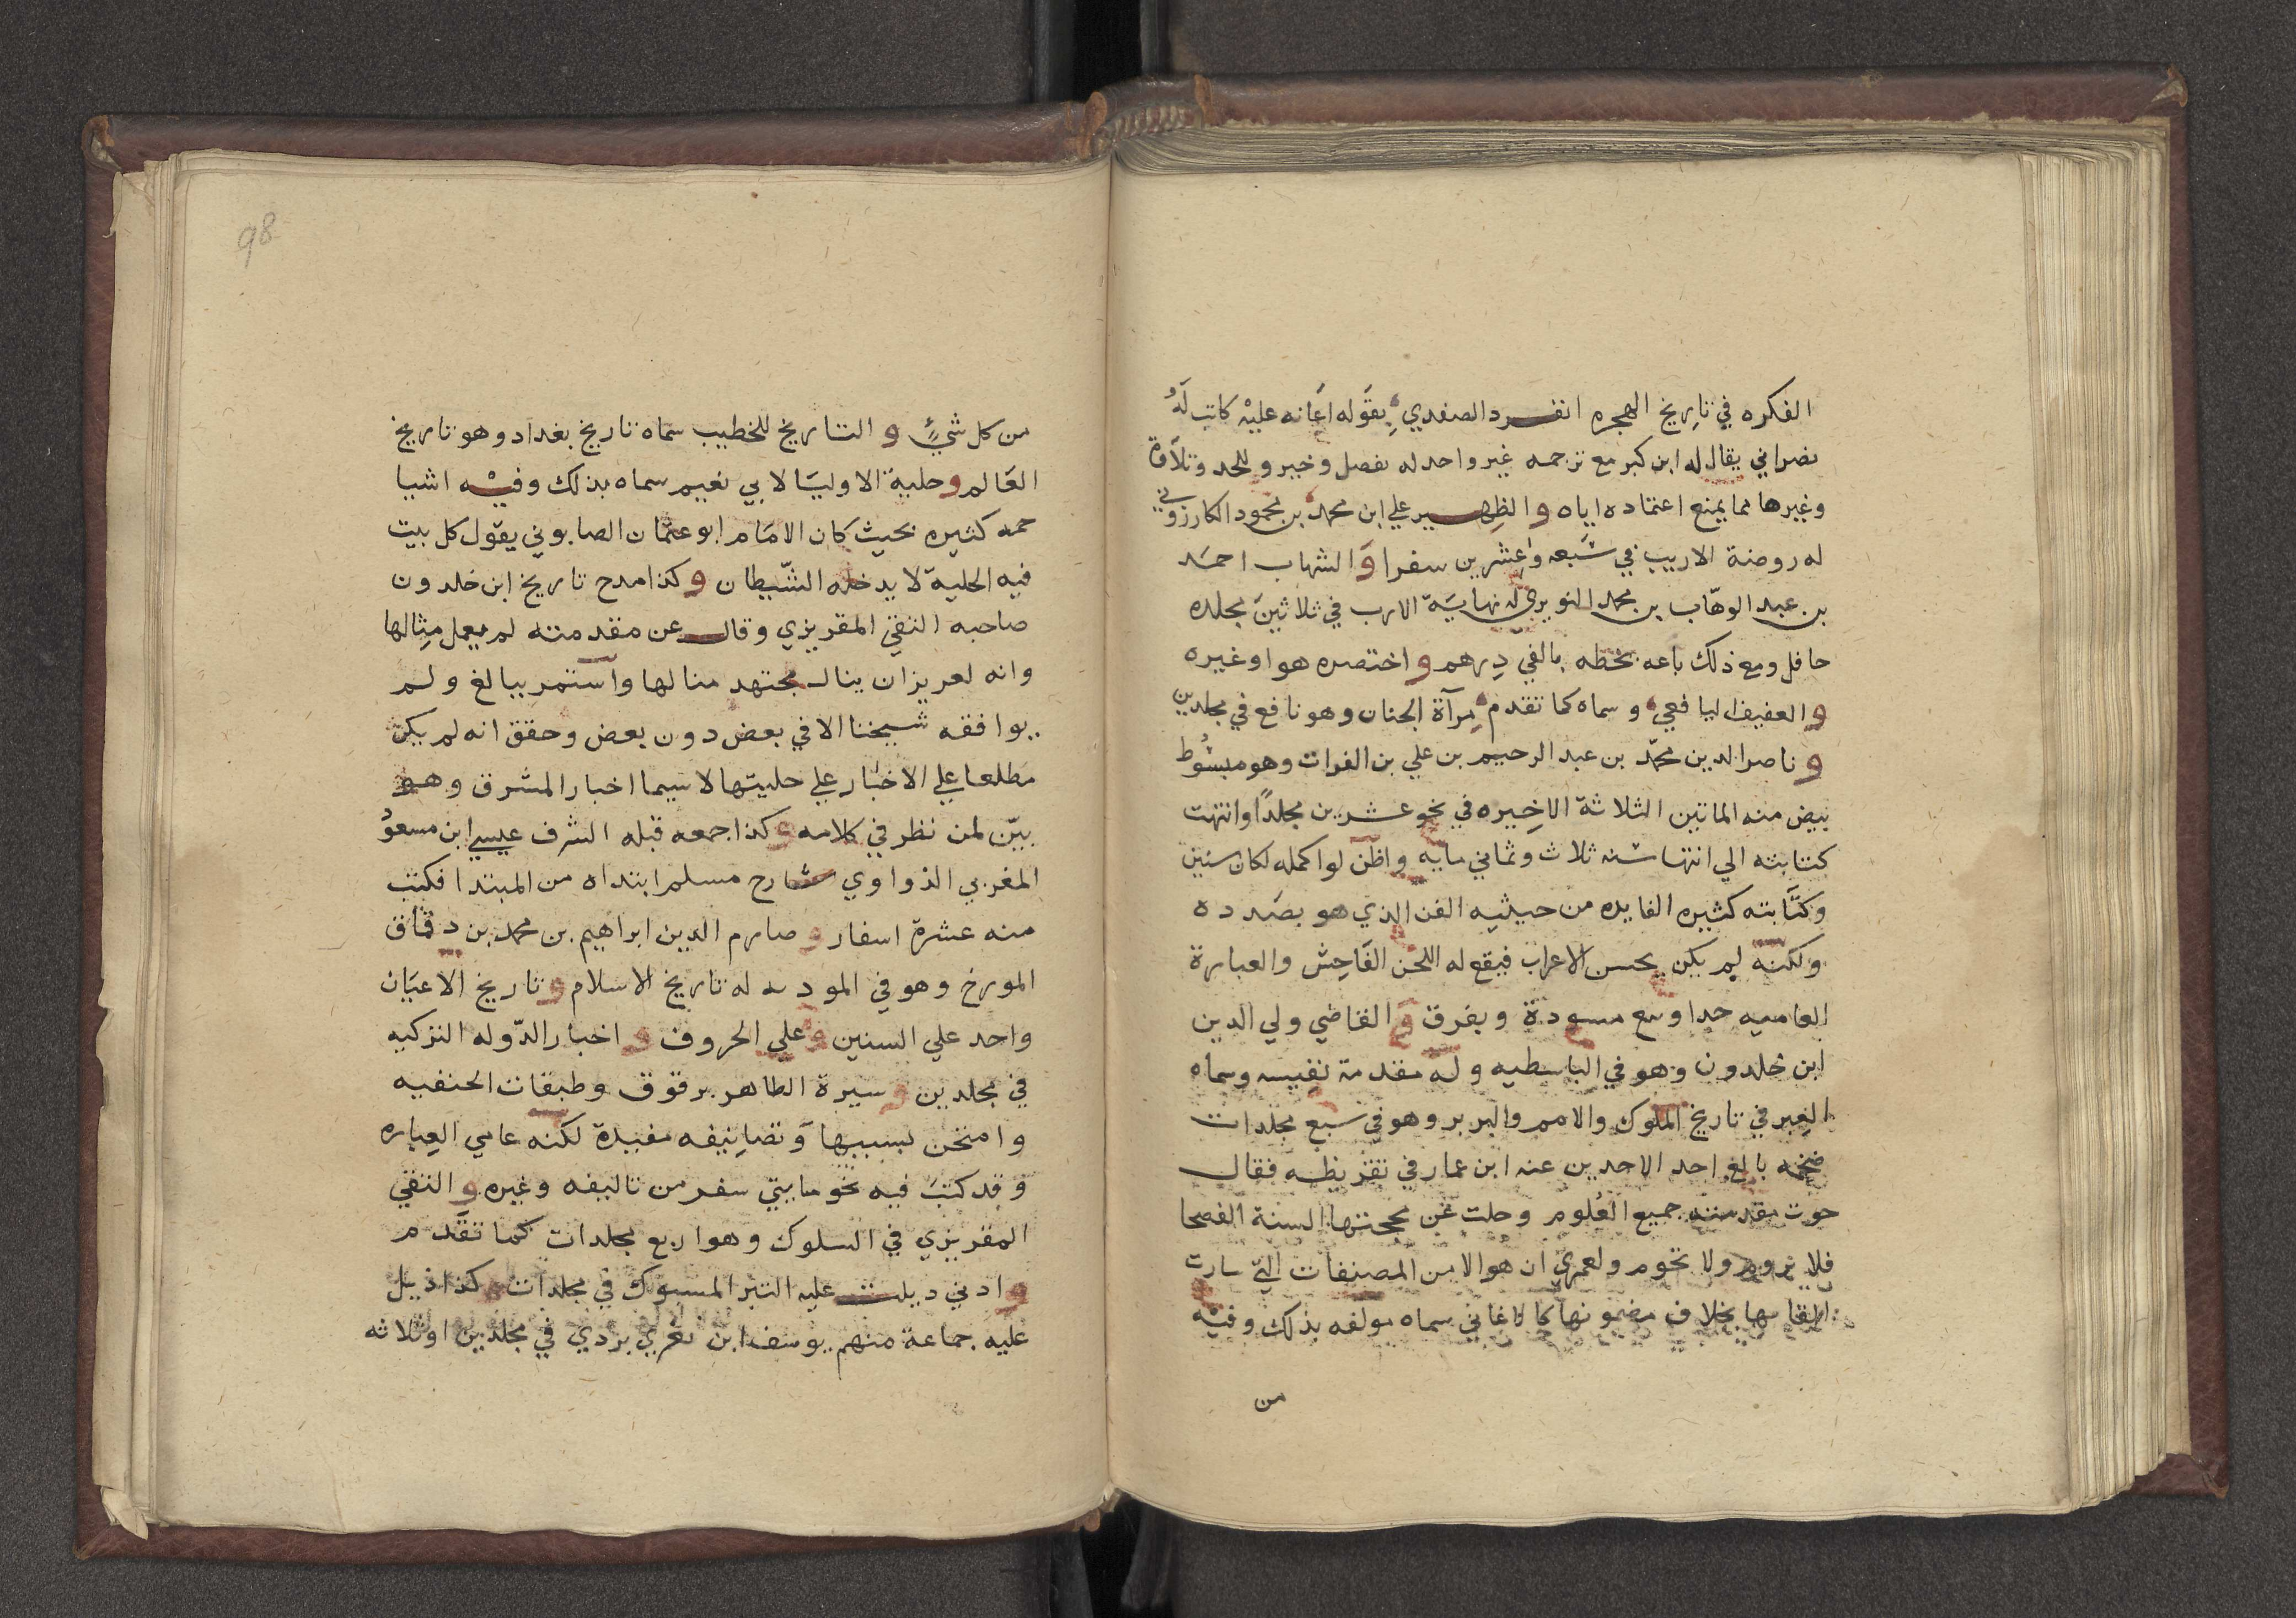 الفكره في تاريخ الهجره انفرد الصفدي بقوله اعانه عليه كاتب له
نصراني يقال له ابن كبر مع ترجمه غير واحد له بفضل وخير وللحد وتلاقة
وغيرها مما يمنع اعتماده اياه و الظهير علي ابن محمد بن محمود الكازروني
له روضة الاريب في سبعه وعشرين سفرا و الشهاب احمد
بن عبد الوهاب بن محمد النويري له نهاية الارب في ثلاثين مجلده
حافل ومع ذلك باعه بخطه بالفي درهم و اختصره هو اوغيره
و العفيف اليافعي وسماه كما تقدم مرآة الجنان وهو نافع في مجلدين
و ناصر الدين محمد بن عبد الرحيم بن علي بن الفرات وهو مبسوط
بيض منه الماتين الثلاثة الاخيره في نحو عشرين مجلدا وانتهت
كتابته الي انتها سنه ثلاث وثماني مايه واظن لو اكمله لكان ستين
وكتابته كثيره الفايده من حيثيه الفن الذي هو بصدده
ولكنه لم يكن يحسن الاعراب فيقع له اللحن الفاحش والعبارة
العاميه جدا وبيع مسودة وبفرق و القاضي ولي الدين
ابن خلدون وهو في الباسطيه وله مقدمة نفيسه وسماه
العبر في تاريخ الملوك والامم والبربر وهو في سبع مجلدات
ضخمه بالغ احد الاحدين عنه ابن عمار في تقريظه فقال
حوت مقدمته جميع العلوم وجلت عن محجتها السنة الفصحا
فلا تروم ولا تحوم ولعمري ان هو الا من المصنفات التي سارت
القابها بخلاف مضمونها كالاغاني سماه مولفه بذلك وفيه
من
98
من كل شيء و التاريخ للخطيب سماه تاريخ بغداد وهو تاريخ
العالم وحلية الاوليا لابي نعيم سماه بذلك وفيه اشيا
جمه كثيره بحيث كان الامام ابو عثمان الصابوني يقول كل بيت
فيه الحلية لا يدخله الشيطان و كذا مدح تاريخ ابن خلدون
صاحبه التقي المقريزي وقال عن مقدمته لم يعمل مثالها
وانه لعزيز ان ينال مجتهد منالها واستمر يبالغ ولم
يوافقه شيخنا الا في بعض دون بعض وحقق انه لم يكن
مطلعا علي الاخبار علي جليتها لا سيما اخبار المشرق وهو
بين لمن نظر في كلامه و كذا جمعه قبله الشرف عيسي ابن مسعود
المغربي الذواوي شارح مسلم ابتداه من المبتدا فكتب
منه عشرة اسفار و صارم الدين ابراهيم بن محمد بن دقماق
المورخ وهو في المودىه له تاريخ الاسلام و تاريخ الاعيان
واحد علي السنين و علي الحروف و اخبار الدوله التركيه
في مجلدين و سيرة الظاهر برقوق وطبقات الحنفيه
وامتحن بسببها و تصانيفه مفيدة لكنه عامي العباره
وقد كتب فيه نحو مايتي سفر من تاليفه وغيره و التقي
المقريزي في السلوك وهو اربع مجلدات كما تقدم
و ادني ديلت عليه التبر المسبوك في مجلدات و كذا ذيل
عليه جماعة منهم يوسف ابن تغري بردي في مجلدين او ثلاثه